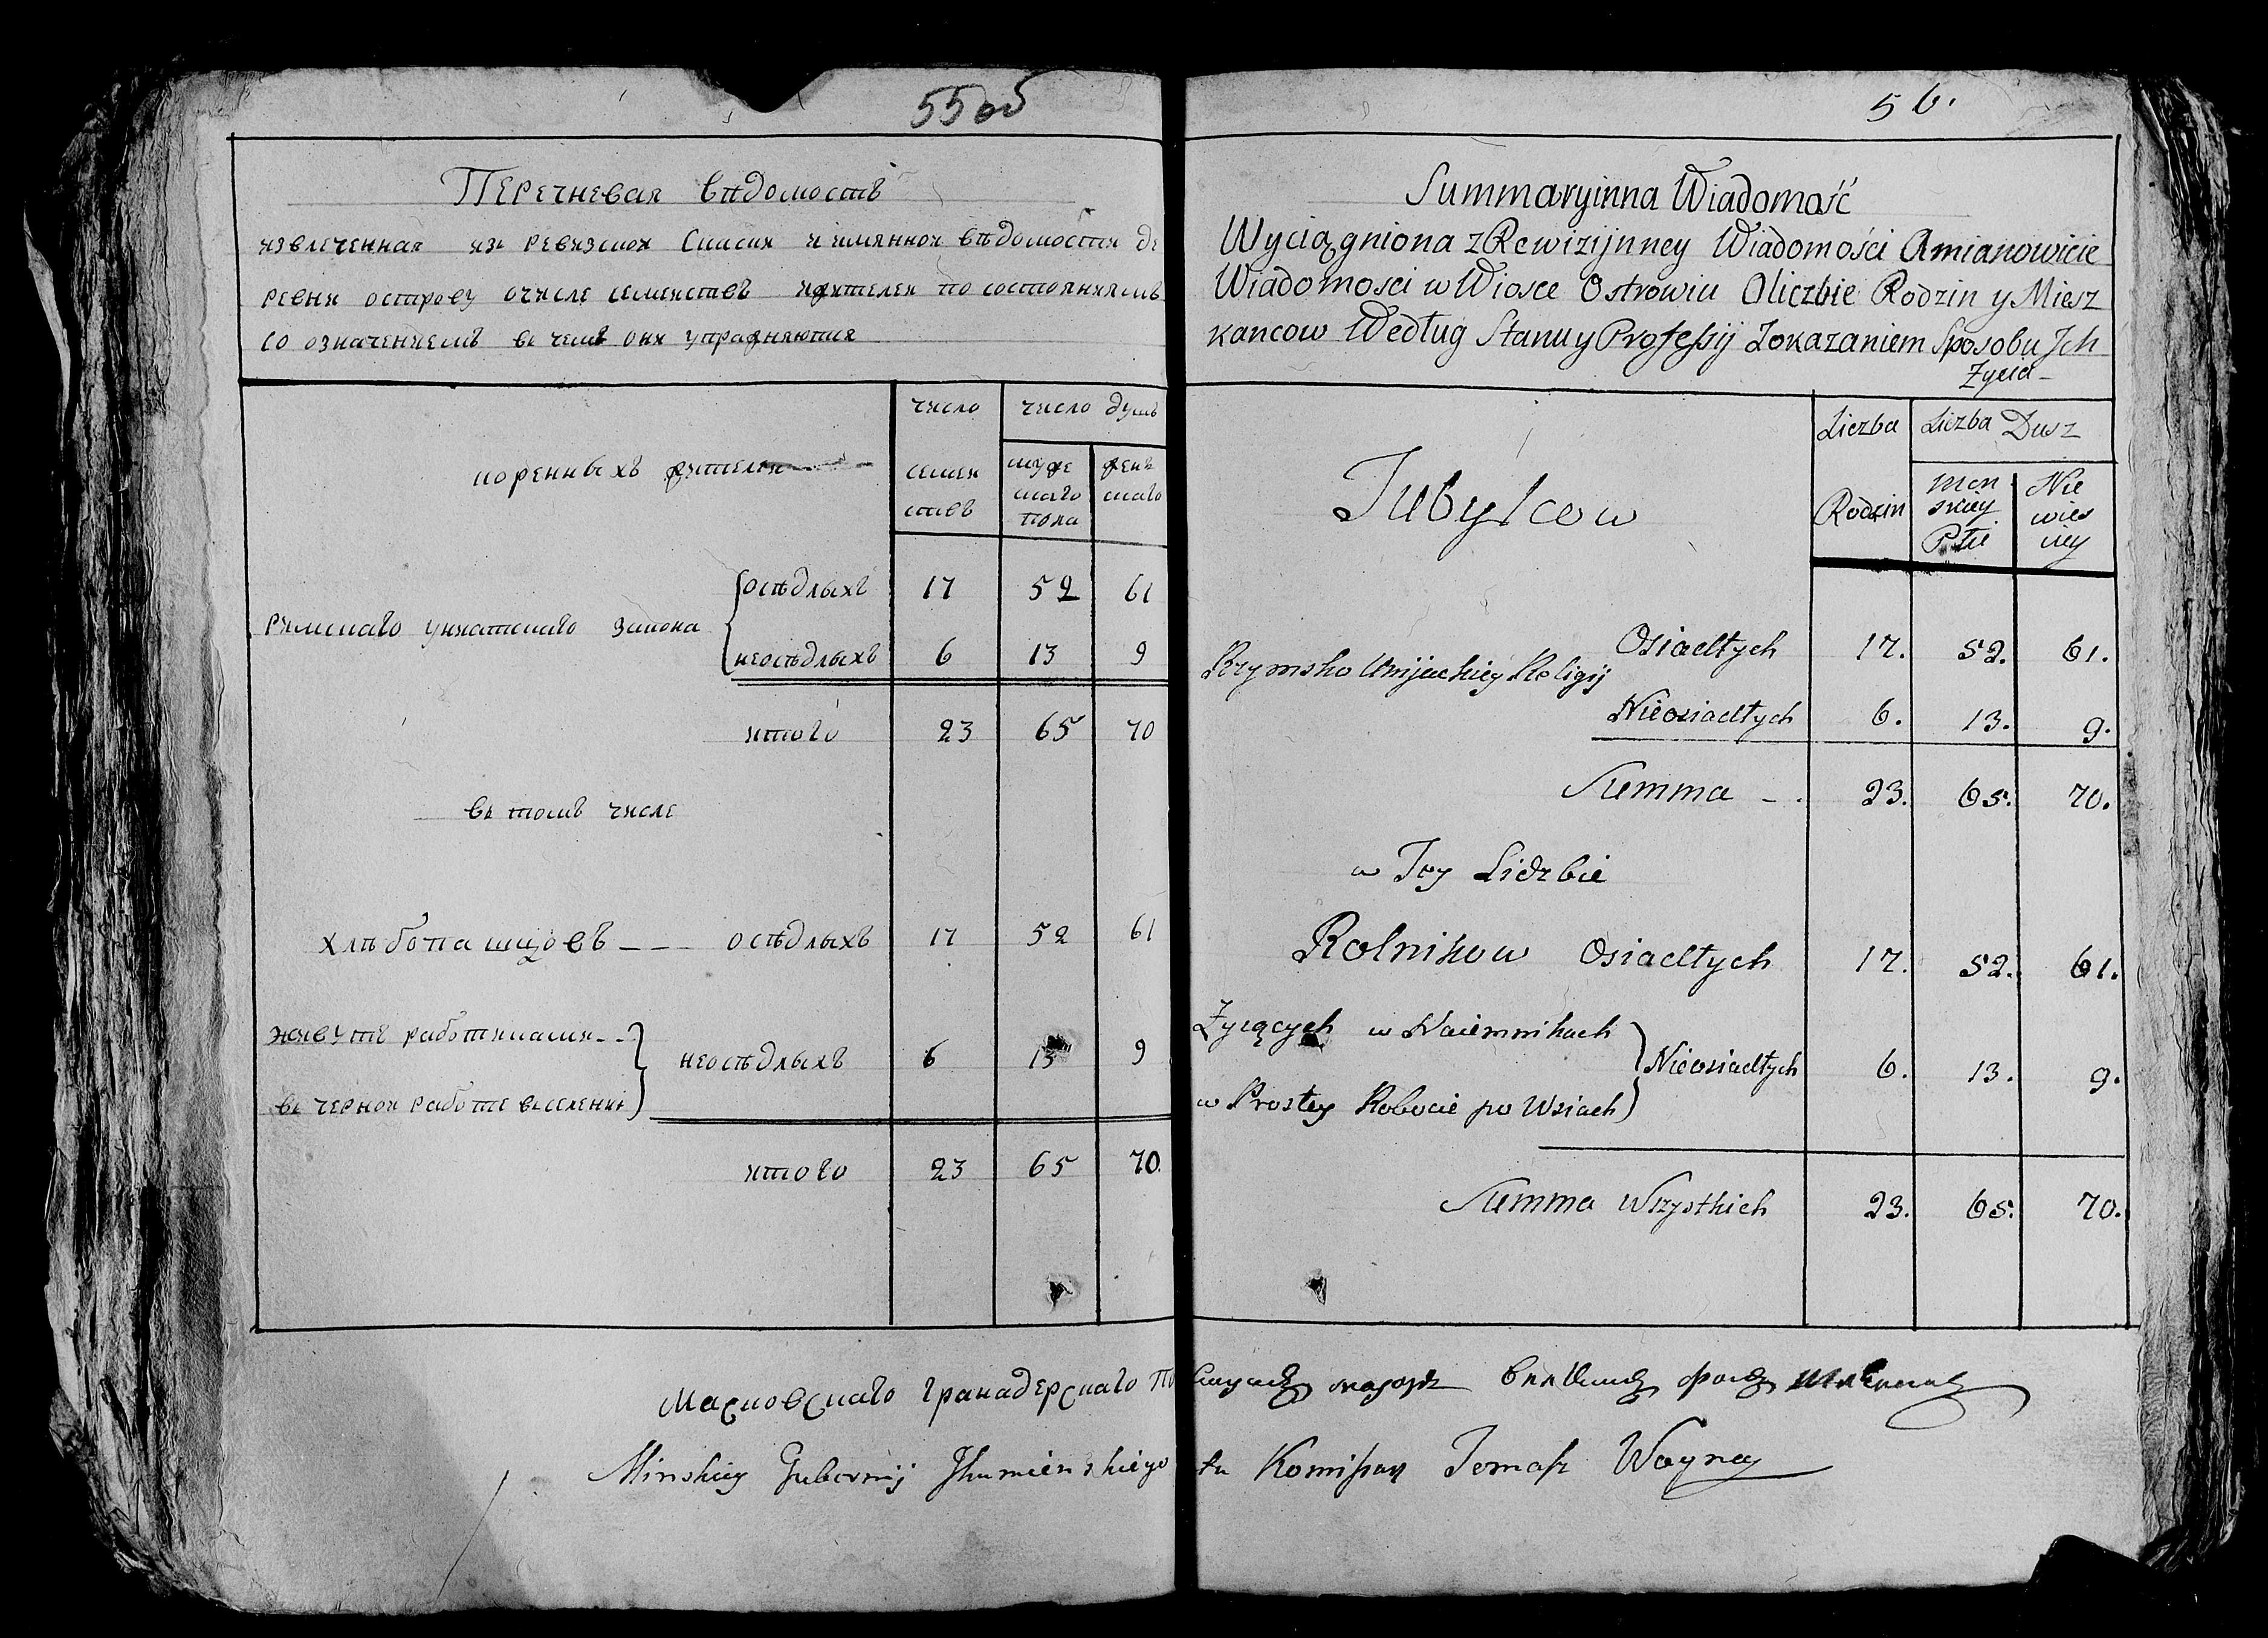 55об
Перечневая вѣдомость
извлеченная изъ ревизской списки и имянной вѣдомости де
ревни острову очисле семействъ и жителей по состояниямъ
со означениемъ въ чемъ они упражняются
коренныхъ жителей
число семей ствъ
число душъ
мужескаго пола
женскаго
римскаго униатскаго закона
осѣдлыхъ 17 52 61
неосѣдлыхъ 6 13 9
итого 23 65 70
въ томъ числе
хлѣбопашцовъ -- осѣдлыхъ 17 52 61
живутъ работниками --
неосѣдлыхъ 6 13 9
въ черной работе въ селении
итого 23 65 70.
Московскаго гранадерскаго По
Minskiey Gubernij Jhumienskiego
56.
Summaryinna Wiadomość
Wyciągniona z Rewizijnney Wiadomości Amianowicie
Wiadomosci w Wiosce Ostrowiu Oliczbie Rodzin y Miesz
kancow Według Stanu y Professij Zokazaniem Sposobu Jch
Zycia-
Tubylcow
Liczba Rodzin
Liczba Dusz
Men skiey Płci
Nie wies ciey
Rzymsko Unijackiey Religij
Osiadłych 17. 52. 61.
Nieosiadłych 6. 13. 9.
Summa -. 23. 65. 70.
w Tey Liczbie
Rolnikow Osiadłych 17. 52. 61.
Zyiących w Naiemnikach
Nieosiadłych 6. 13. 9.
w Prostey Robocie po Wsiach
Summa Wszystkich 23. 65. 70.
маіоръ фонъ
tu Komissarz Tomasz Wayney